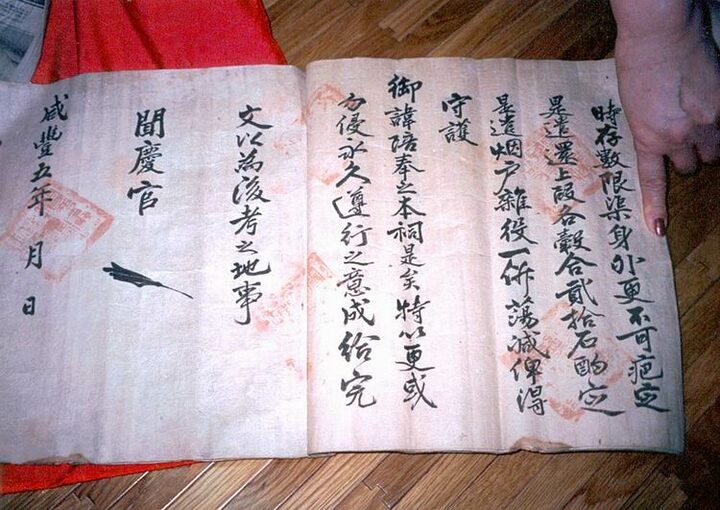 時存數限渠身外更不可疤定
是遣還上段各穀合貳拾石酌定
是遣烟戶雜役一倂蕩减俾得
守護
御諱陪奉之本祠是矣特以更或
勿侵永久遵行之意成給完
文以為後考之地事
聞慶官
咸豐五年 月 日